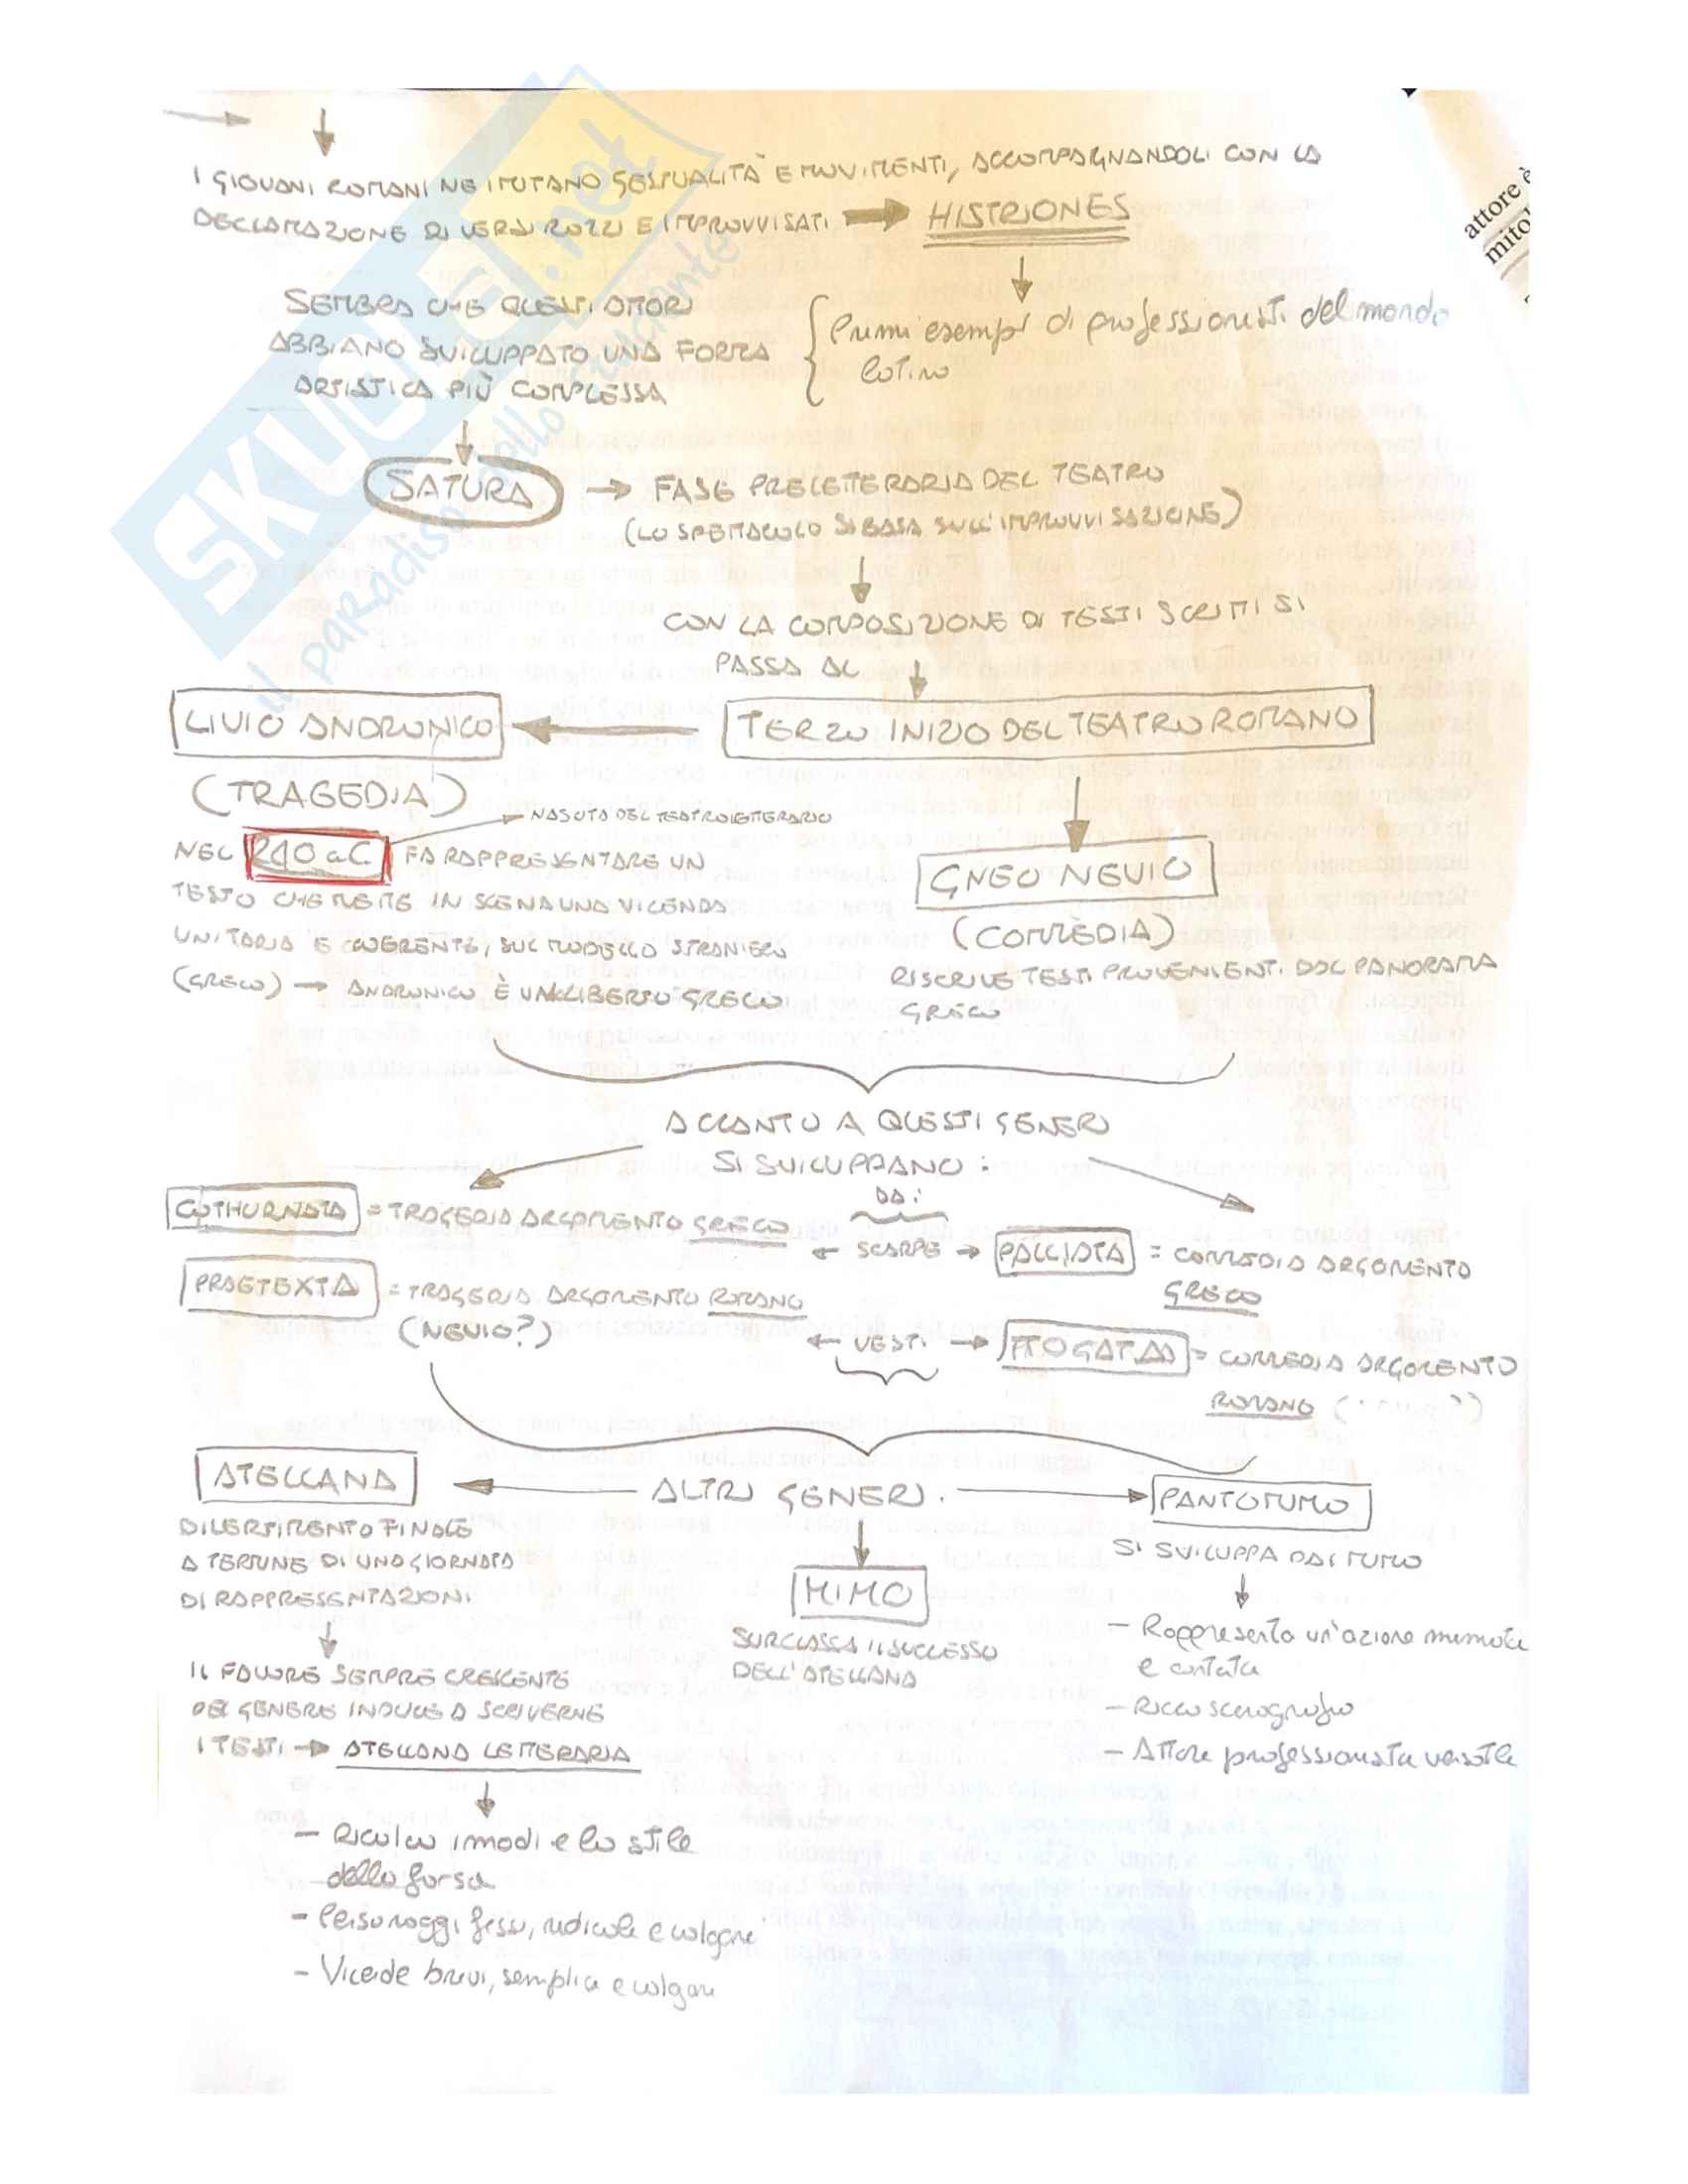 I GIOVANI ROMANI NE IMITANO GESTUALITÀ E MOVIMENTI, ACCOMPAGNANDOLI CON LA
DECLAMAZIONE DI VERSI ROZZI E IMPROVVISATI → HISTRIONES
attore è
mito
SEMBRA CHE QUESTI ATTORI
ABBIANO SVILUPPATO UNA FORMA
ARTISTICA PIÙ COMPLESSA
Primi esempi di professionisti del mondo
latino
SATURA → FASE PRELETTERARIA DEL TEATRO
(LO SPETTACOLO SI BASA SULL'IMPROVVISAZIONE)
CON LA COMPOSIZIONE DI TESTI SCRITTI SI
PASSA AL
TERZO INIZIO DEL TEATRO ROMANO
LIVIO ANDRONICO
(TRAGEDIA)
NASCITA DEL TEATRO LETTERARIO
NEL 240 a.C. FA RAPPRESENTARE UN
TESTO CHE METTE IN SCENA UNA VICENDA
UNITARIA E COERENTE, SUL MODELLO STRANIERO
(GRECO) → ANDRONICO È UN LIBERTO GRECO
GNEO NEVIO
(COMMEDIA)
RISCRIVE TESTI PROVENIENTI DAL PANORAMA
GRECO
ACCANTO A QUESTI GENERI
SI SVILUPPANO:
DA:
COTHURNATA = TRAGEDIA ARGOMENTO GRECO
← SCARPE → PALLIATA = COMMEDIA ARGOMENTO
GRECO
PRAETEXTA = TRAGEDIA ARGOMENTO ROMANO
(NEVIO?)
← VESTI → TOGATA = COMMEDIA ARGOMENTO
ROMANO
ALTRI GENERI.
ATELLANA
DIVERTIMENTO FINALE
A TERMINE DI UNA GIORNATA
DI RAPPRESENTAZIONI
IL FAVORE SEMPRE CRESCENTE
DEL GENERE INDUCE A SCRIVERNE
I TESTI → ATELLANA LETTERARIA
- Ricalca i modi e lo stile
della farsa
- Personaggi fissi, ridicoli e volgari
- Vicende brevi, semplici e volgari
MIMO
SURCLASSA IL SUCCESSO
DELL'ATELLANA
PANTOMIMO
SI SVILUPPA DAL MIMO
- Rappresenta un'azione mimata
e cantata
- Ricca scenografia
- Attore professionista versatile
SKUOLA.net
il paradiso dello studente